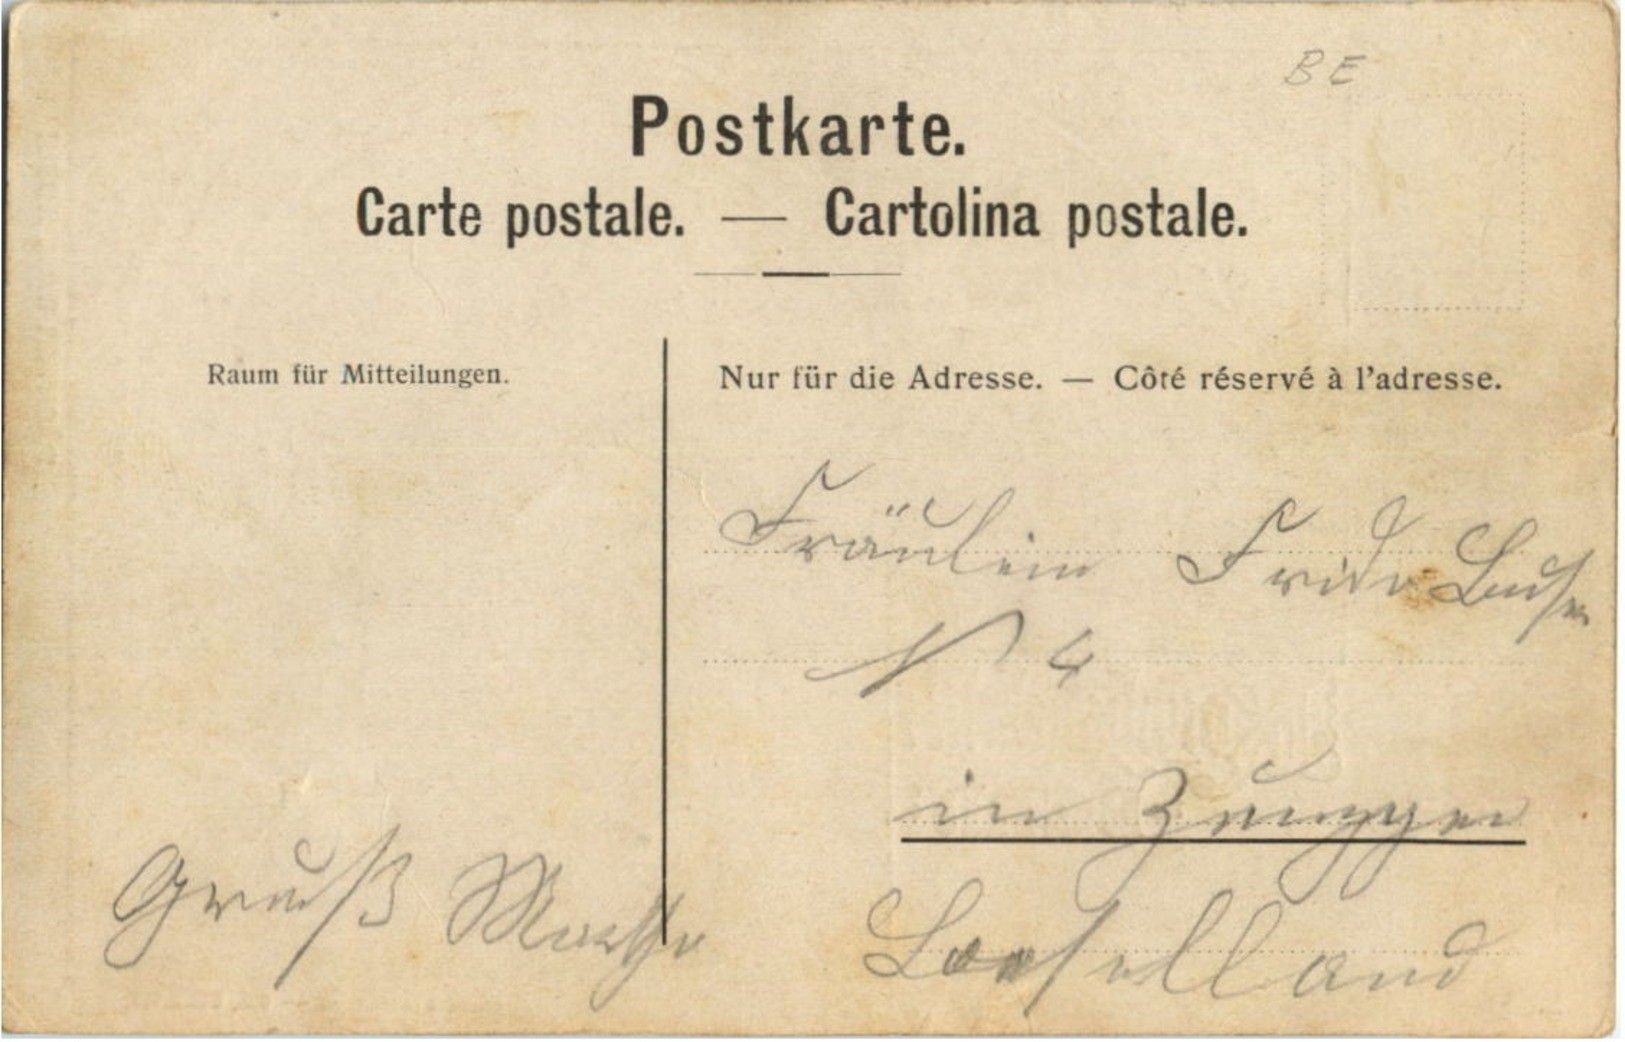 BE
Postkarte.
Carte postale. — Cartolina postale.
Raum für Mitteilungen.
Nur für die Adresse. — Côté réservé à l'adresse.
Fräulein Frida Buser
N 4
in Zunzgen
Baselland
Gruß Martha